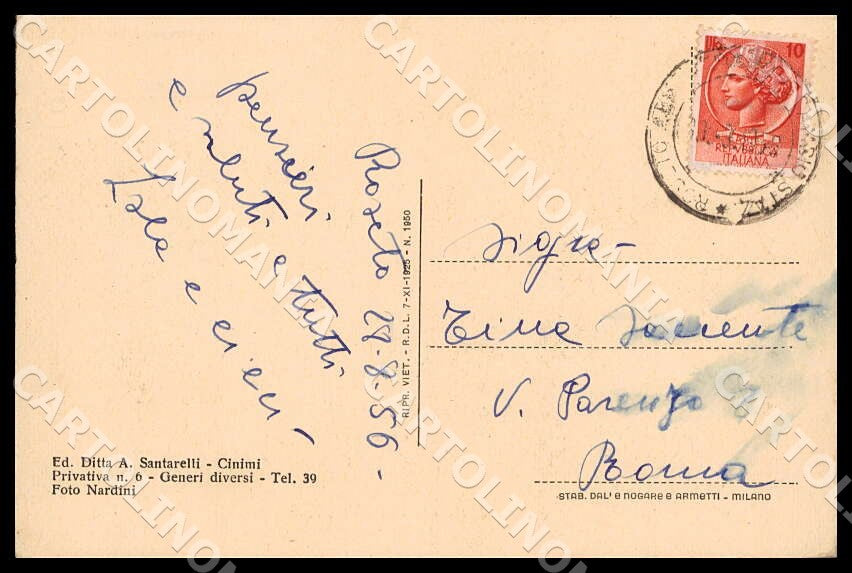 Roseto 28-8-56-
pensieri
e saluti a tutti
Lola e
RIPR. VIET. - R.D.L. 7-XI-1925 - N. 1950
Ed. Ditta A. Santarelli - Cinimi
Privativa n. 6 - Generi diversi - Tel. 39
Foto Nardini
10
REPVBBLICA
ITALIANA
Sigra-
Tina
V. Parenzo
Roma
STAB. DAL' E NOGARE E ARMETTI - MILANO
CARTOLINOMANIA